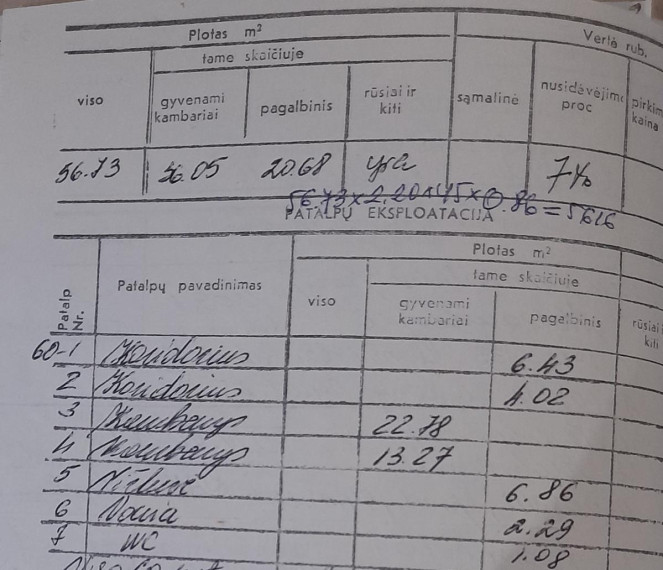 Plotas m² Vertė rub.
tame skaičiuje
viso gyvenami kambariai pagalbinis rūsiai ir kiti sąmatinė nusidėvėjimo proc pirkim kaina
56.73 36.05 20.68 yra 7%
56.73 x 2.20 x 45 x 0.86 = 5616
PATALPŲ EKSPLOATACIJA
Patalp Nr. Patalpų pavadinimas Plotas m²
tame skaičiuje
viso gyvenami kambariai pagalbinis rūsiai kiti
60-1 Koridorius 6.43
2 Koridorius 4.02
3 Kambarys 22.78
4 Kambarys 13.27
5 Virtuvė 6.86
6 Vonia 2.29
7 WC 1.08